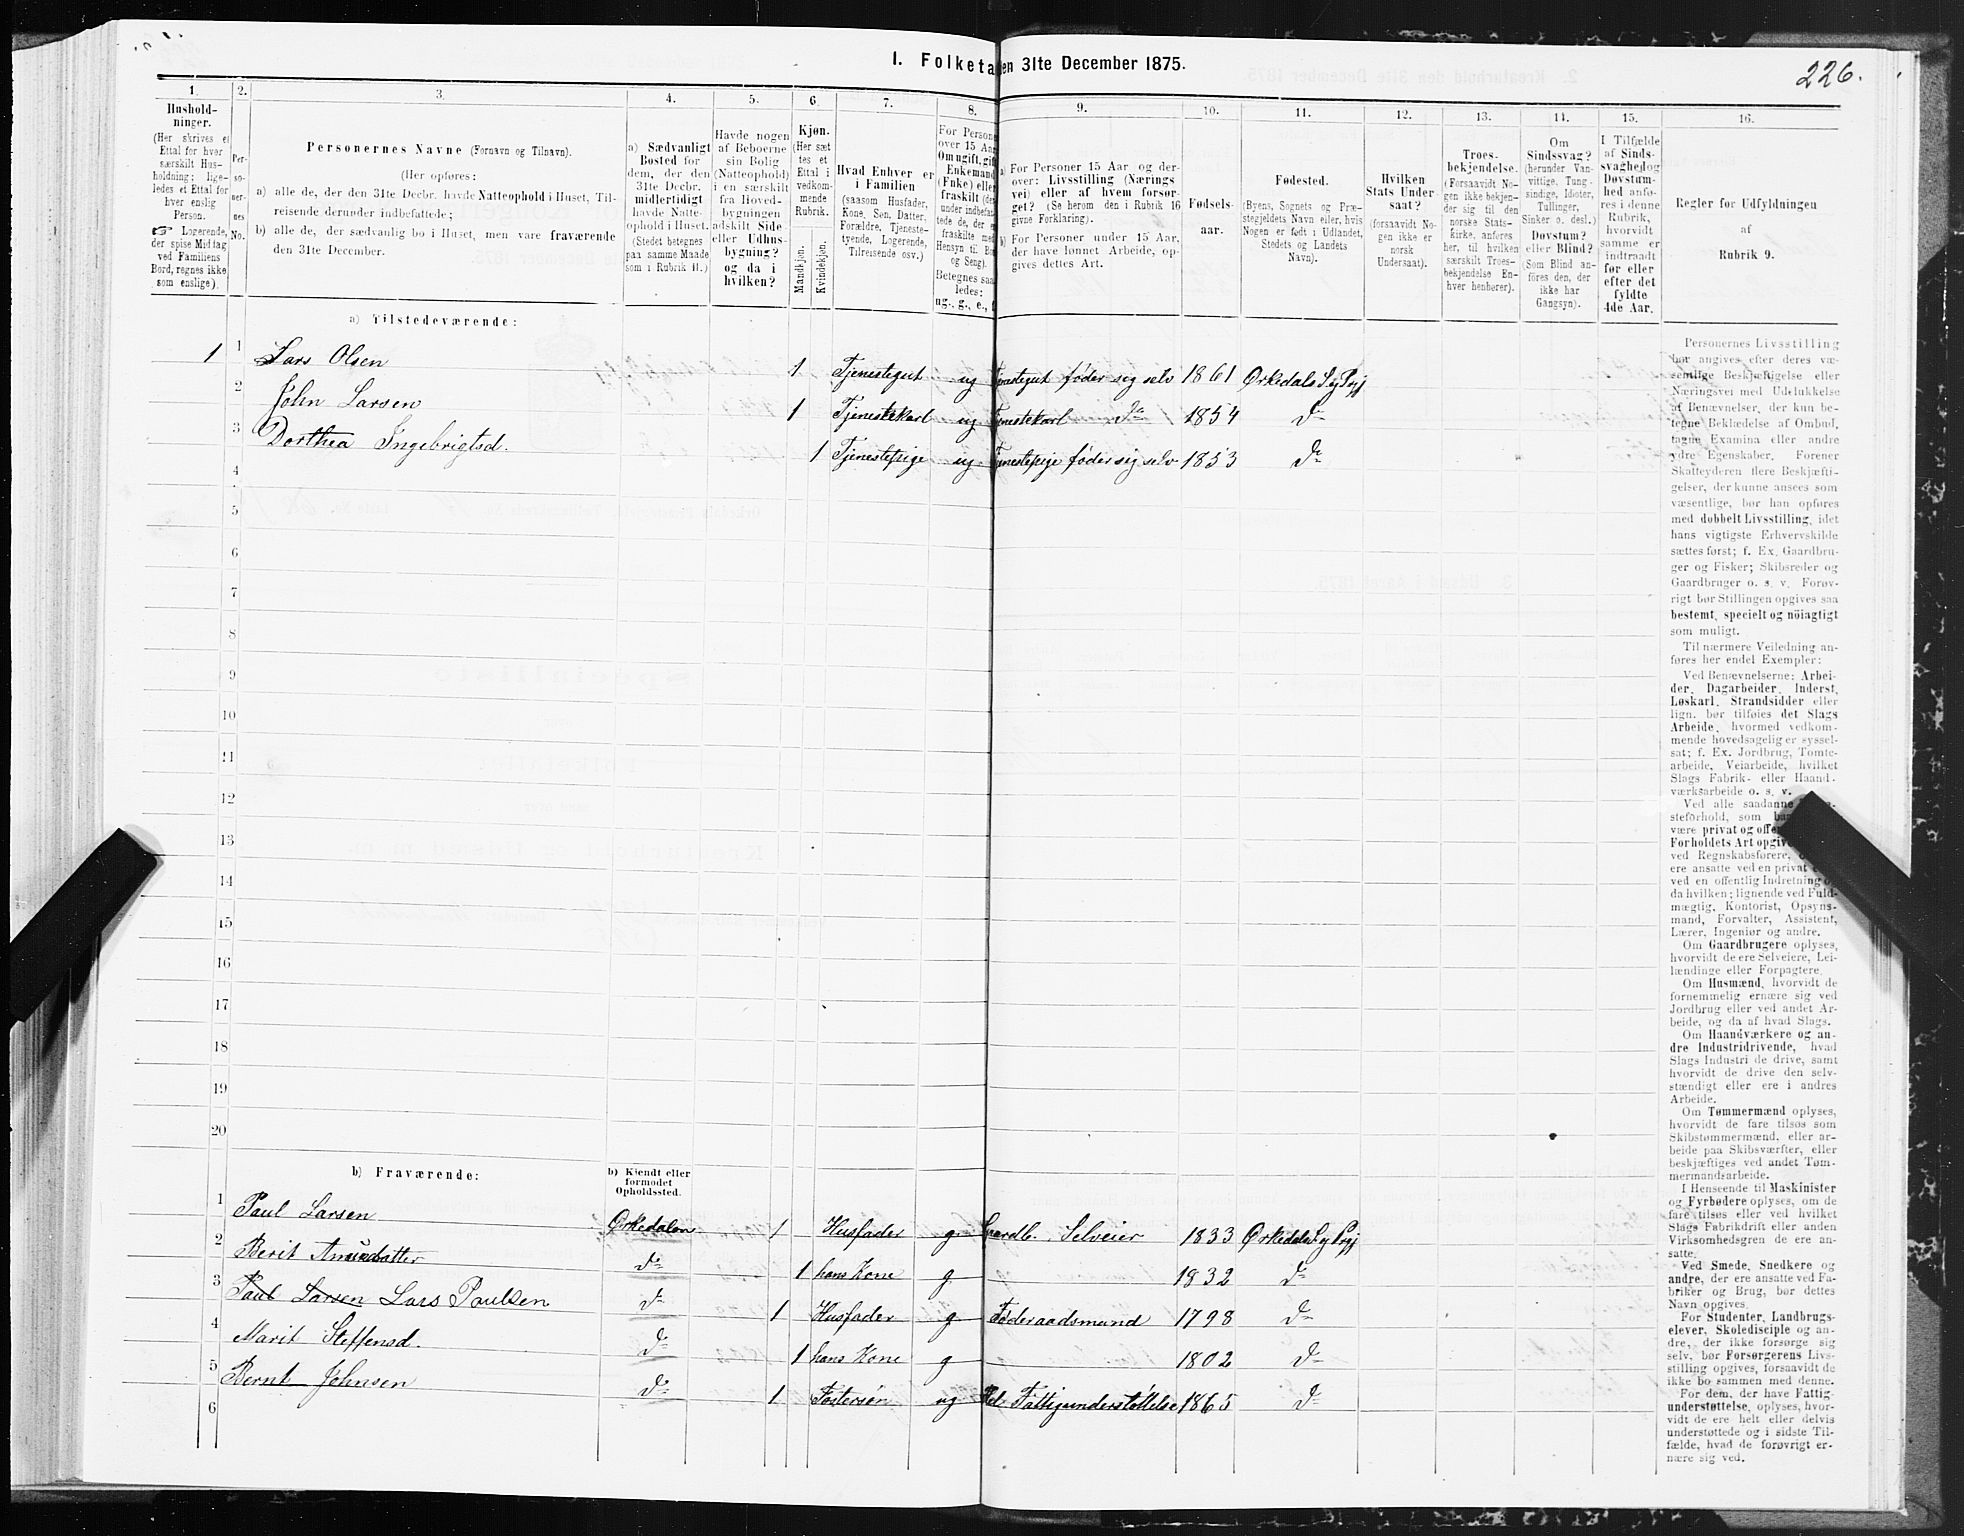 226.
I. Folketa en 31te December 1875.
1. 2. 3. 4. 5. 6. 7. 8. 9. 10. 11. 12. 13. 14. 15. 16.
Hushold-
ninger.
(Her skrives et
Ettal for hver
særskilt Hus-
holdning; lige-
ledes et Ettal for
hver enslig
Person.
☞ Logerende,
der spise Middag
ved Familiens
Bord, regnes ikke
som enslige).
Per-
so-
ner-
nes
No.
Personernes Navne (Fornavn og Tilnavn).
(Her opføres:
a) alle de, der den 31te Decbr. havde Natteophold i Huset, Til-
reisende derunder indbefattede;
b) alle de, der sædvanlig bo i Huset, men vare fraværende
den 31te December.
a) Sædvanligt
Bosted for
dem, der den
31te Decbr.
midlertidigt
havde Natte-
ophold i Huset.
(Stedet betegnes
paa samme Maade
som i Rubrik 11.)
Havde nogen
af Beboerne
sin Bolig
(Natteophold)
i en særskilt
fra Hoved-
bygningen
adskilt Side-
eller Udhus-
bygning?
og da i
hvilken?
Kjøn.
(Her sæt-
tes et
Ettal i
vedkom-
mende
Rubrik.
Mandkjøn.
Kvindekjøn.
Hvad Enhver er
i Familien
(saasom Husfader,
Kone, Søn, Datter,
Forældre, Tjeneste-
tyende, Logerende,
Tilreisende osv.)
For Persone
over 15 Aar
Om ugift, gift
Enkemand
(Enke) eller
fraskilt (der
under indbefat
tede de, der er
fraskilte med
Hensyn til Bo
og Seng).
Betegnes saa
ledes:
ug., g., e., f
a) For Personer 15 Aar og der-
over: Livsstilling (Nærings
vei) eller af hvem forsør-
get? (Se herom den i Rubrik 16
givne Forklaring).
b) For Personer under 15 Aar,
der have lønnet Arbeide, op-
gives dettes Art.
Fødsels-
aar.
Fødested.
(Byens, Sognets og Præ-
stegjeldets Navn eller, hvis
Nogen er født i Udlandet,
Stedets og Landets
Navn).
Hvilken
Stats Under-
saat?
(forsaavidt No-
gen ikke er
norsk
Undersaat).
Troes-
bekjendelse.
(Forsaavidt No-
gen ikke bekjen-
der sig til den
norske Stats-
kirke, anføres
her, til hvilken
særskilt Troes-
bekjendelse En-
hver henhører).
Om
Sindssvag?
(herunder Van-
vittige, Tung-
sindige, Idioter,
Tullinger,
Sinker o. desl.)
Døvstum?
eller Blind?
(Som Blind an-
føres den, der
ikke har
Gangsyn).
I Tilfælde
af Sinds-
svaghed og
Døvstum-
hed anfø-
res i denne
Rubrik,
hvorvidt
samme er
indtraadt
før eller
efter det
fyldte
4de Aar.
Regler for Udfyldningen
af
Rubrik 9.
a) Tilstedeværende:
1 1 Lars Olsen 1 Tjenestegut ug Tjenestegut føder sig selv 1861 Ørkedals S og Prgj
2 John Larsen 1 Tjenestekarl ug Tjenestekarl do 1854 do
3 Dorthea Ingebrigtsd. 1 Tjenestepige ug Tjenestepige føder sig selv 1853 do
4
5
6
7
8
9
10
11
12
13
14
15
16
17
18
19
20
b) Fraværende:
b) Kjendt eller
formodet
Opholdssted.
1 Paul Larsen Ørkedalen 1 Husfader g Gaardb. Selveier 1833 Ørkedals S og Prgj
2 Berit Amundsdatter do 1 hans Kone g 1832 do
3 Paul Larsen Lars Paulsen do 1 Husfader g Føderaadsmand 1798 do
4 Marit Steffensd. do 1 hans Kone g 1802 do
5 Bernt Johnsen do 1 Fostersøn ug Fattigunderstøttelse 1865 do
6
Personernes Livsstilling
bør angives efter deres væ-
sentlige Beskjæftigelse eller
Næringsvei med Udelukkelse
af Benævnelser, der kun be-
tegne Beklædelse af Ombud,
tagne Examina eller andre
ydre Egenskaber. Forener
Skatteyderen flere Beskjæfti-
gelser, der kunne ansees som
væsentlige, bør han opføres
med dobbelt Livsstilling, idet
hans vigtigste Erhvervskilde
sættes først; f. Ex. Gaardbru-
ger og Fisker; Skibsreder og
Gaardbruger o. s. v. Forøv-
rigt bør Stillingen opgives saa
bestemt, specielt og nöiagtigt
som muligt.
Til nærmere Veiledning an-
føres her endel Exempler:
Ved Benævnelserne: Arbei-
der, Dagarbeider, Inderst,
Løskarl, Strandsidder eller
lign. bør tilføies det Slags
Arbeide, hvormed vedkom-
mende hovedsagelig er syssel-
sat; f. Ex. Jordbrug, Tomte-
arbeide, Veiarbeide, hvilket
Slags Fabrik- eller Haand-
værksarbeide o. s. v.
Ved alle saadanne
steforhold, som
være privat og
Forholdets Art
ved Regnskabsførere,
ere ansatte ved en privat
ved en offentlig Indretning
da hvilken; lignende ved Fuld-
mægtig, Kontorist, Opsyns-
mand, Forvalter, Assistent,
Lærer, Ingeniør og andre.
Om Gaardbrugere oplyses,
hvorvidt de ere Selveiere, Lei-
lændinge eller Forpagtere.
Om Husmænd, hvorvidt de
fornemmelig ernære sig ved
Jordbrug eller ved andet Ar-
beide, og da af hvad Slags.
Om Haandværkere og an-
dre Industridrivende, hvad
Slags Industri de drive, samt
hvorvidt de drive den selv-
stændigt eller ere i andres
Arbeide.
Om Tømmermænd oplyses,
hvorvidt de fare tilsøs som
Skibstømmermænd, eller ar-
beide paa Skibsværfter, eller
beskjæftiges ved andet Tøm-
mermandsarbeide.
I Henseende til Maskinister
og Fyrbødere oplyses, om de
fare tilsøs eller ved hvilket
Slags Fabrikdrift eller anden
Virksomhedsgren de ere an-
satte.
Ved Smede, Snedkere og
andre, der ere ansatte ved Fa-
briker og Brug, bør dettes
Navn opgives.
For Studenter, Landbrugs-
elever, Skoledisciple og an-
dre, der ikke forsørge sig
selv, bør Forsørgerens Livs-
stilling opgives, forsaavidt de
ikke bo sammen med denne.
For dem, der have Fattig-
understøttelse, oplyses, hvor-
vidt de ere helt eller delvis
understøttede og i sidste Til-
fælde, hvad de forøvrigt er-
nære sig ved.